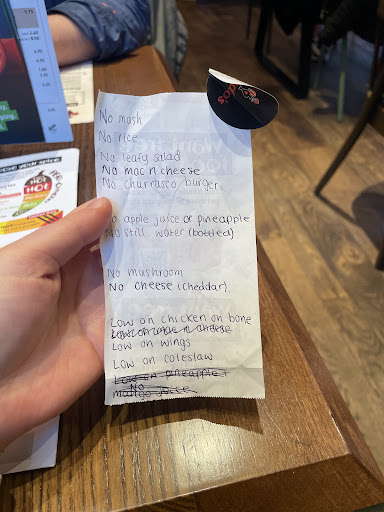 No mash
No rice
No leafy salad
No mac n cheese
No churrasco burger
No apple juice or pineapple
No still water (bottled)
No mushroom
No cheese (cheddar)
Low on chicken on bone
Low on mac n cheese
Low on wings
Low on coleslaw
Low on pineapple +
No
mango juice
do's
HOT